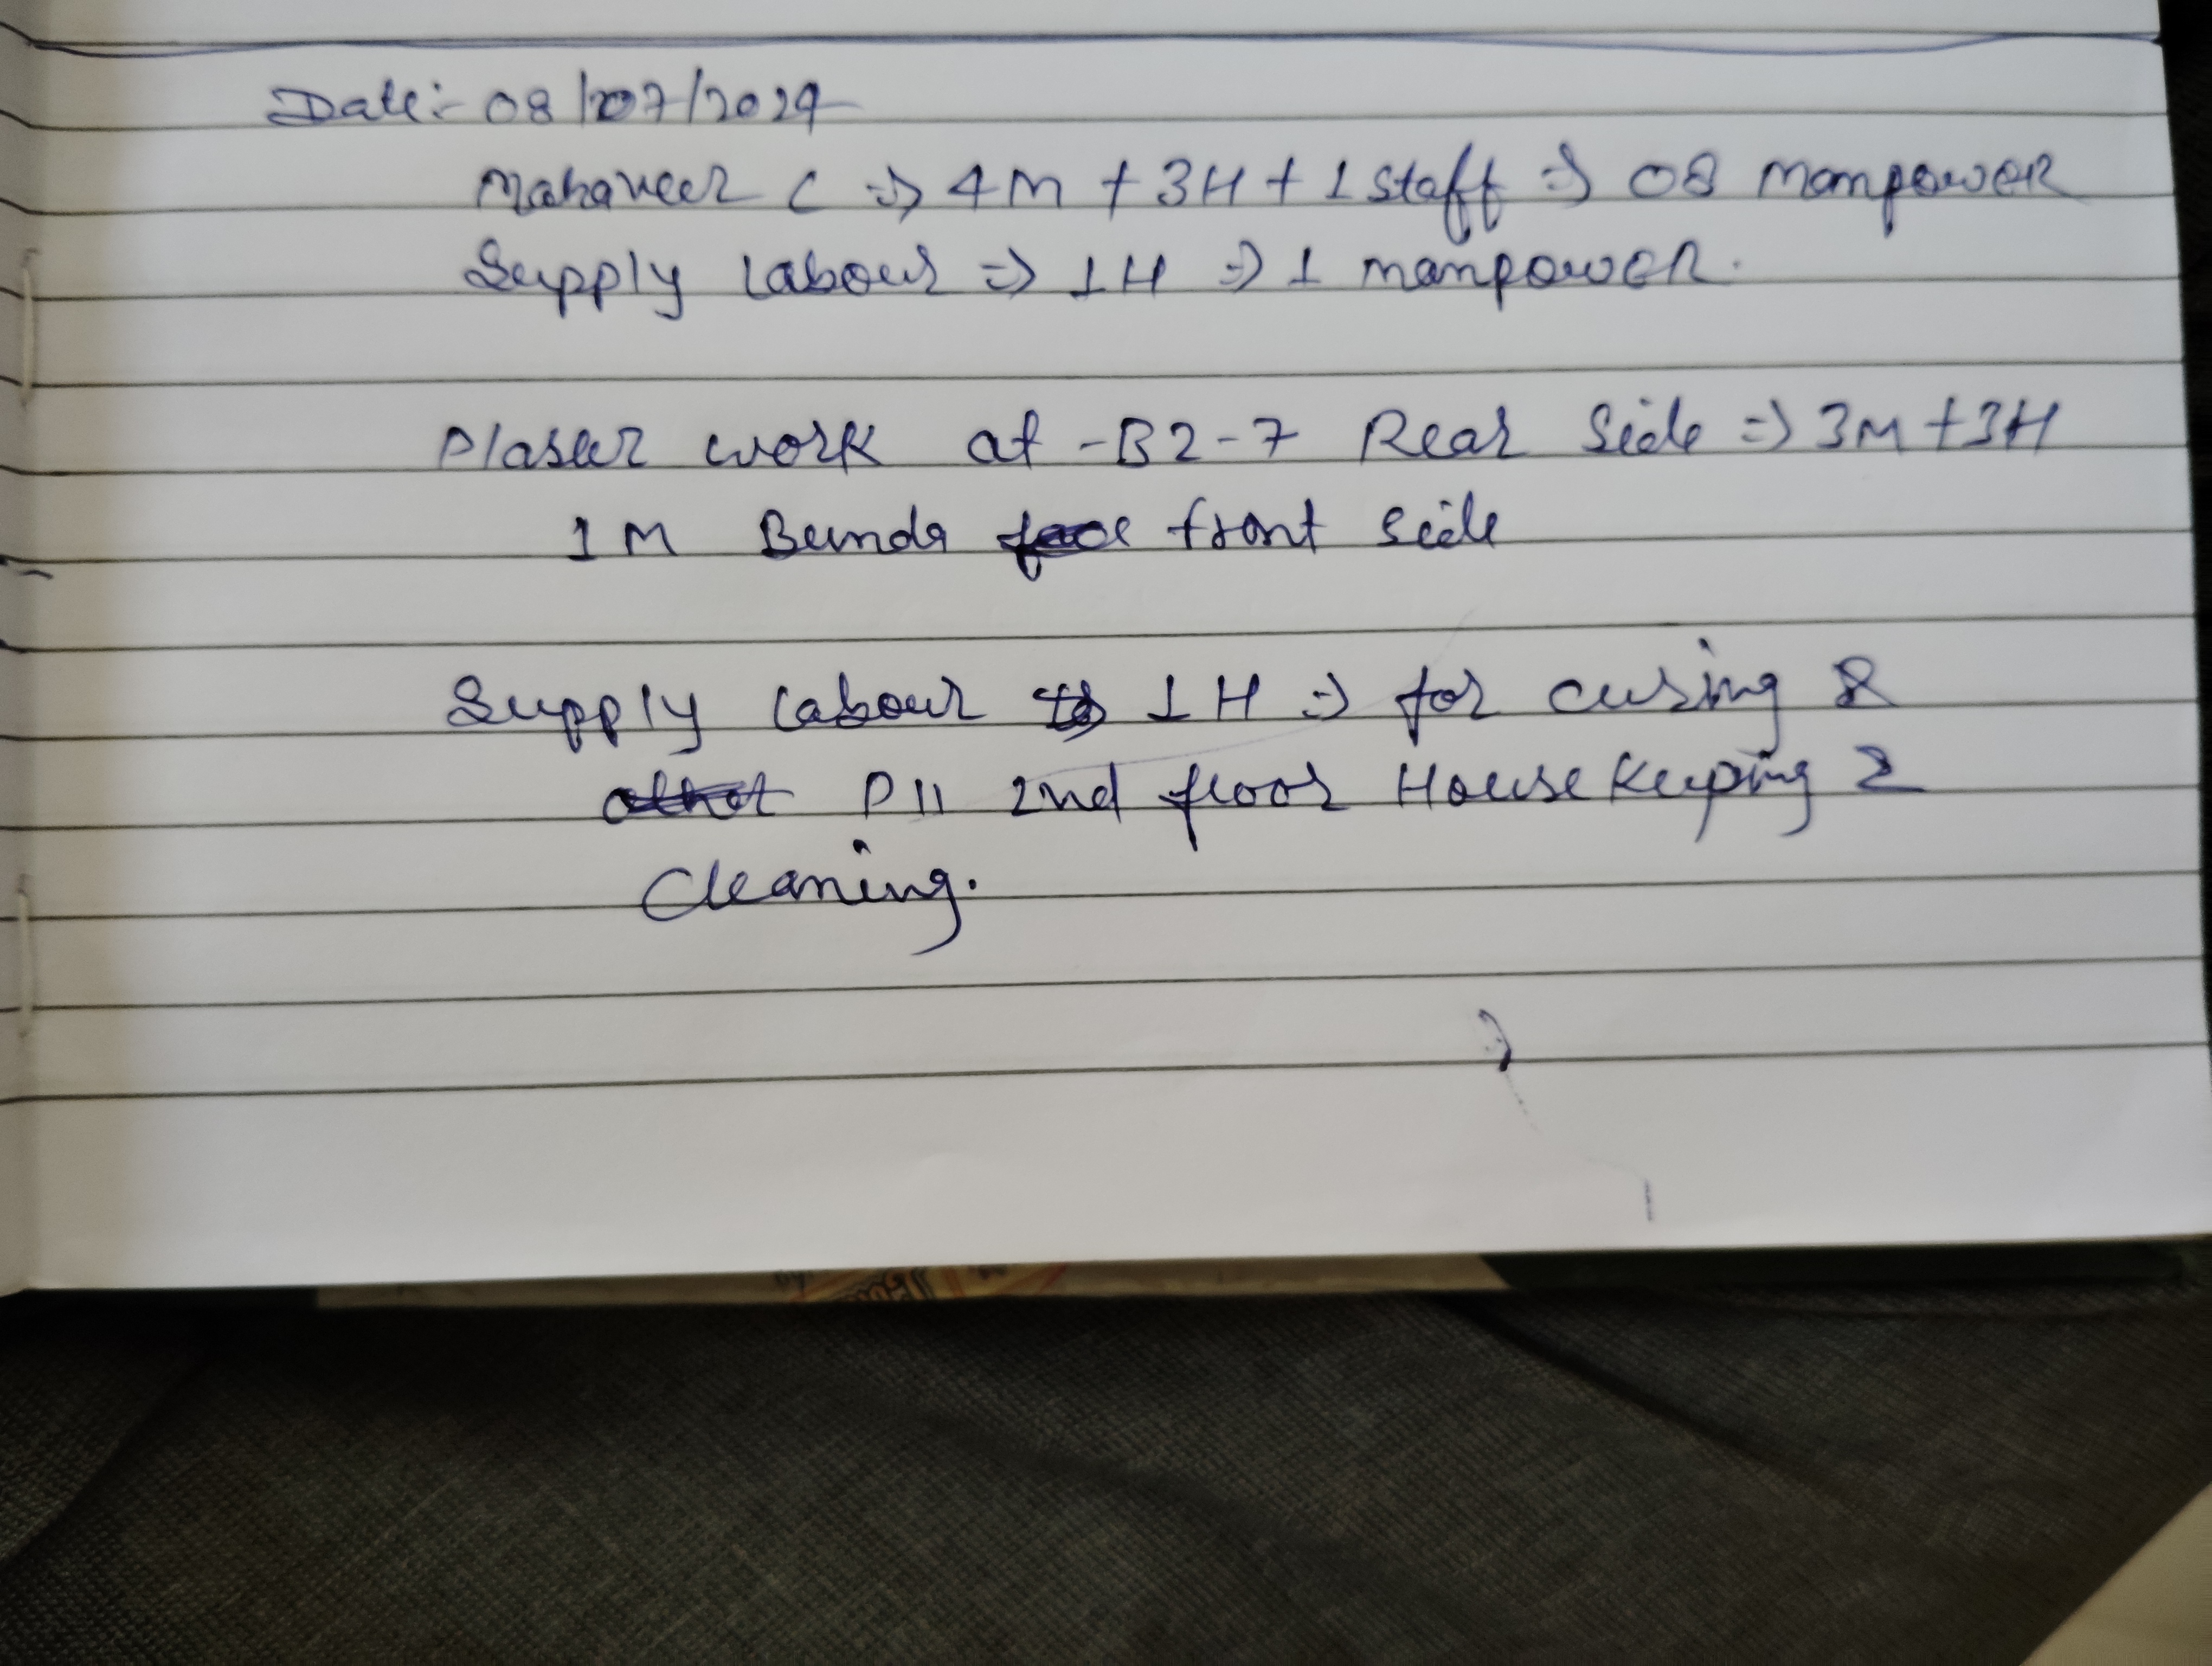 Date:- 08/07/2024
Mahaveer C => 4M + 3H + 1 staff => 08 manpower
Supply labour => 1H => 1 manpower.
Plaster work at -B2-7 Rear Side => 3M + 3H
1 M Bunda front side
Supply labour 1 H => for curing &
P11 2nd floor House Keeping &
Cleaning.